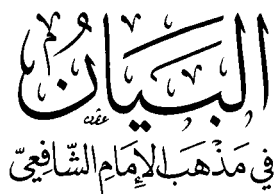 البَيَانُ
في مَذْهَبِ الإِمَامِ الشَّافِعِيِّ